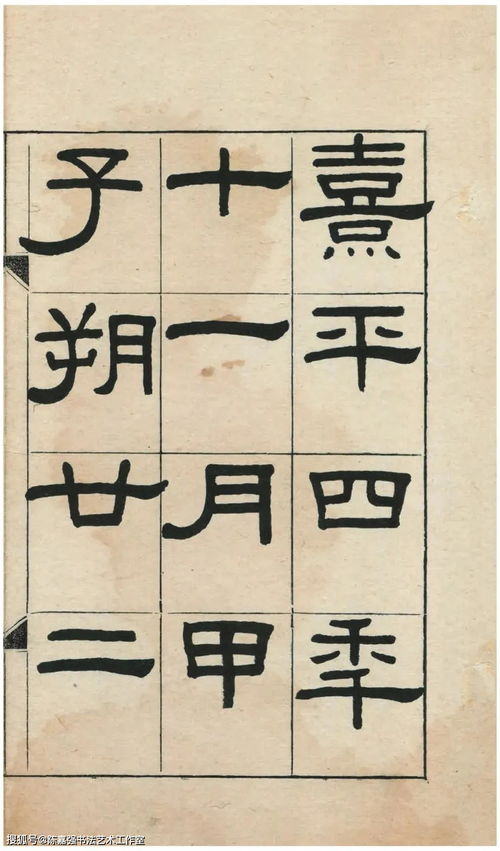 熹平四年
十一月甲
子朔廿二
搜狐号@陈嘉强书法艺术工作室